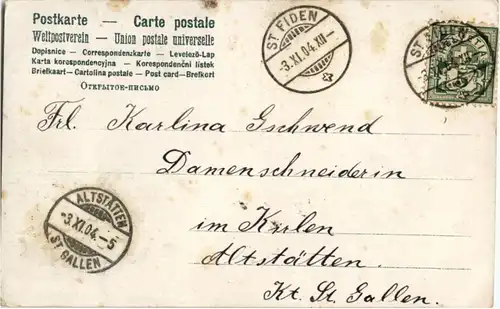 Postkarte — Carte postale
Weltpostverein — Union postale universelle
Dopisnice - Correspondenzkarte - Levelező-Lap
Karta korespondencyjna - Korespondenční lístek
Briefkaart - Cartolina postale - Post card - Brefkort
Открытое-письмо
ST FIDEN
-3.XI.04.XII-
ST FIDEN
Frl. Karlina Gschwend
Damenschneiderin
im Krilen
Altstätten.
Kt. St. Gallen.
ALTSTÄTTEN
-3.XI.04.-5
ST GALLEN